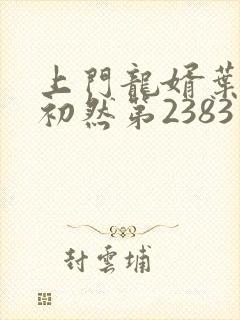 上門龍婿葉
初然第2383
封雲埔